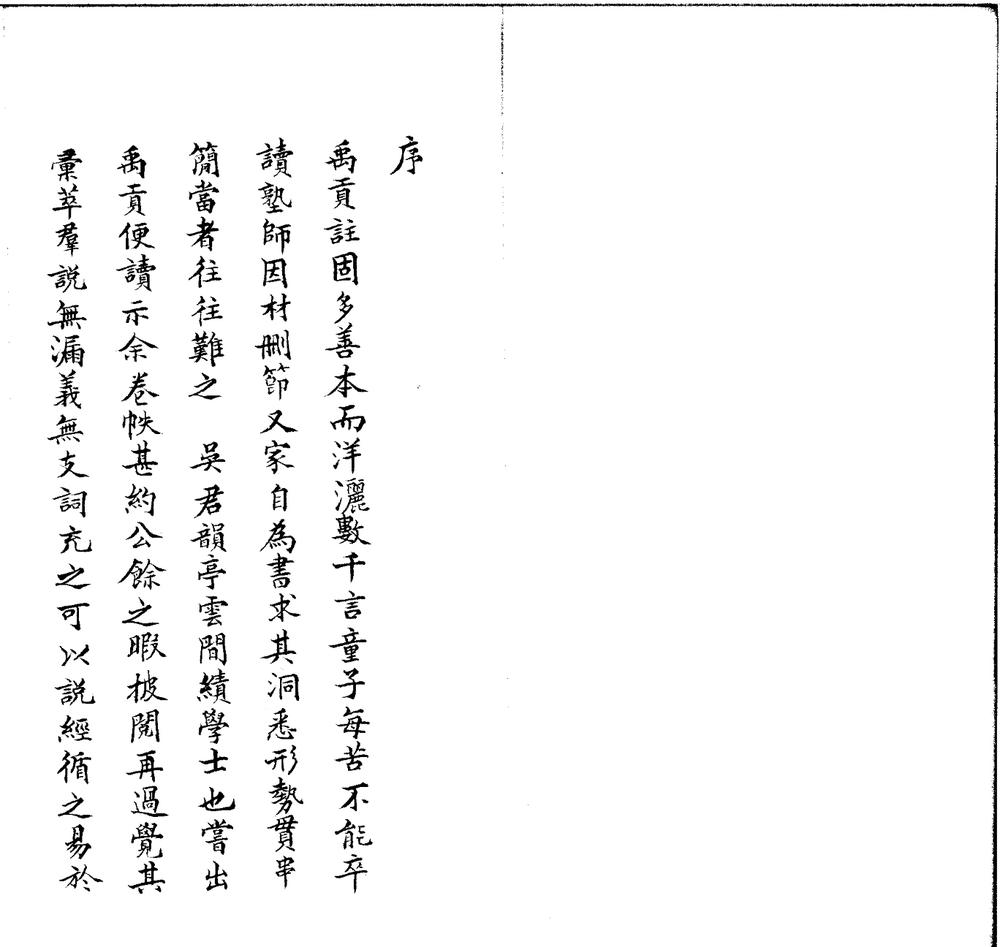 序
禹貢註固多善本而洋灑數千言童子每苦不能卒
讀塾師因材刪節又家自為書求其洞悉形勢貫串
簡當者往往難之　吳君韻亭雲間績學士也嘗出
禹貢便讀示余卷帙甚約公餘之暇披閱再過覺其
彙萃羣說無漏義無支詞充之可以說經循之易於